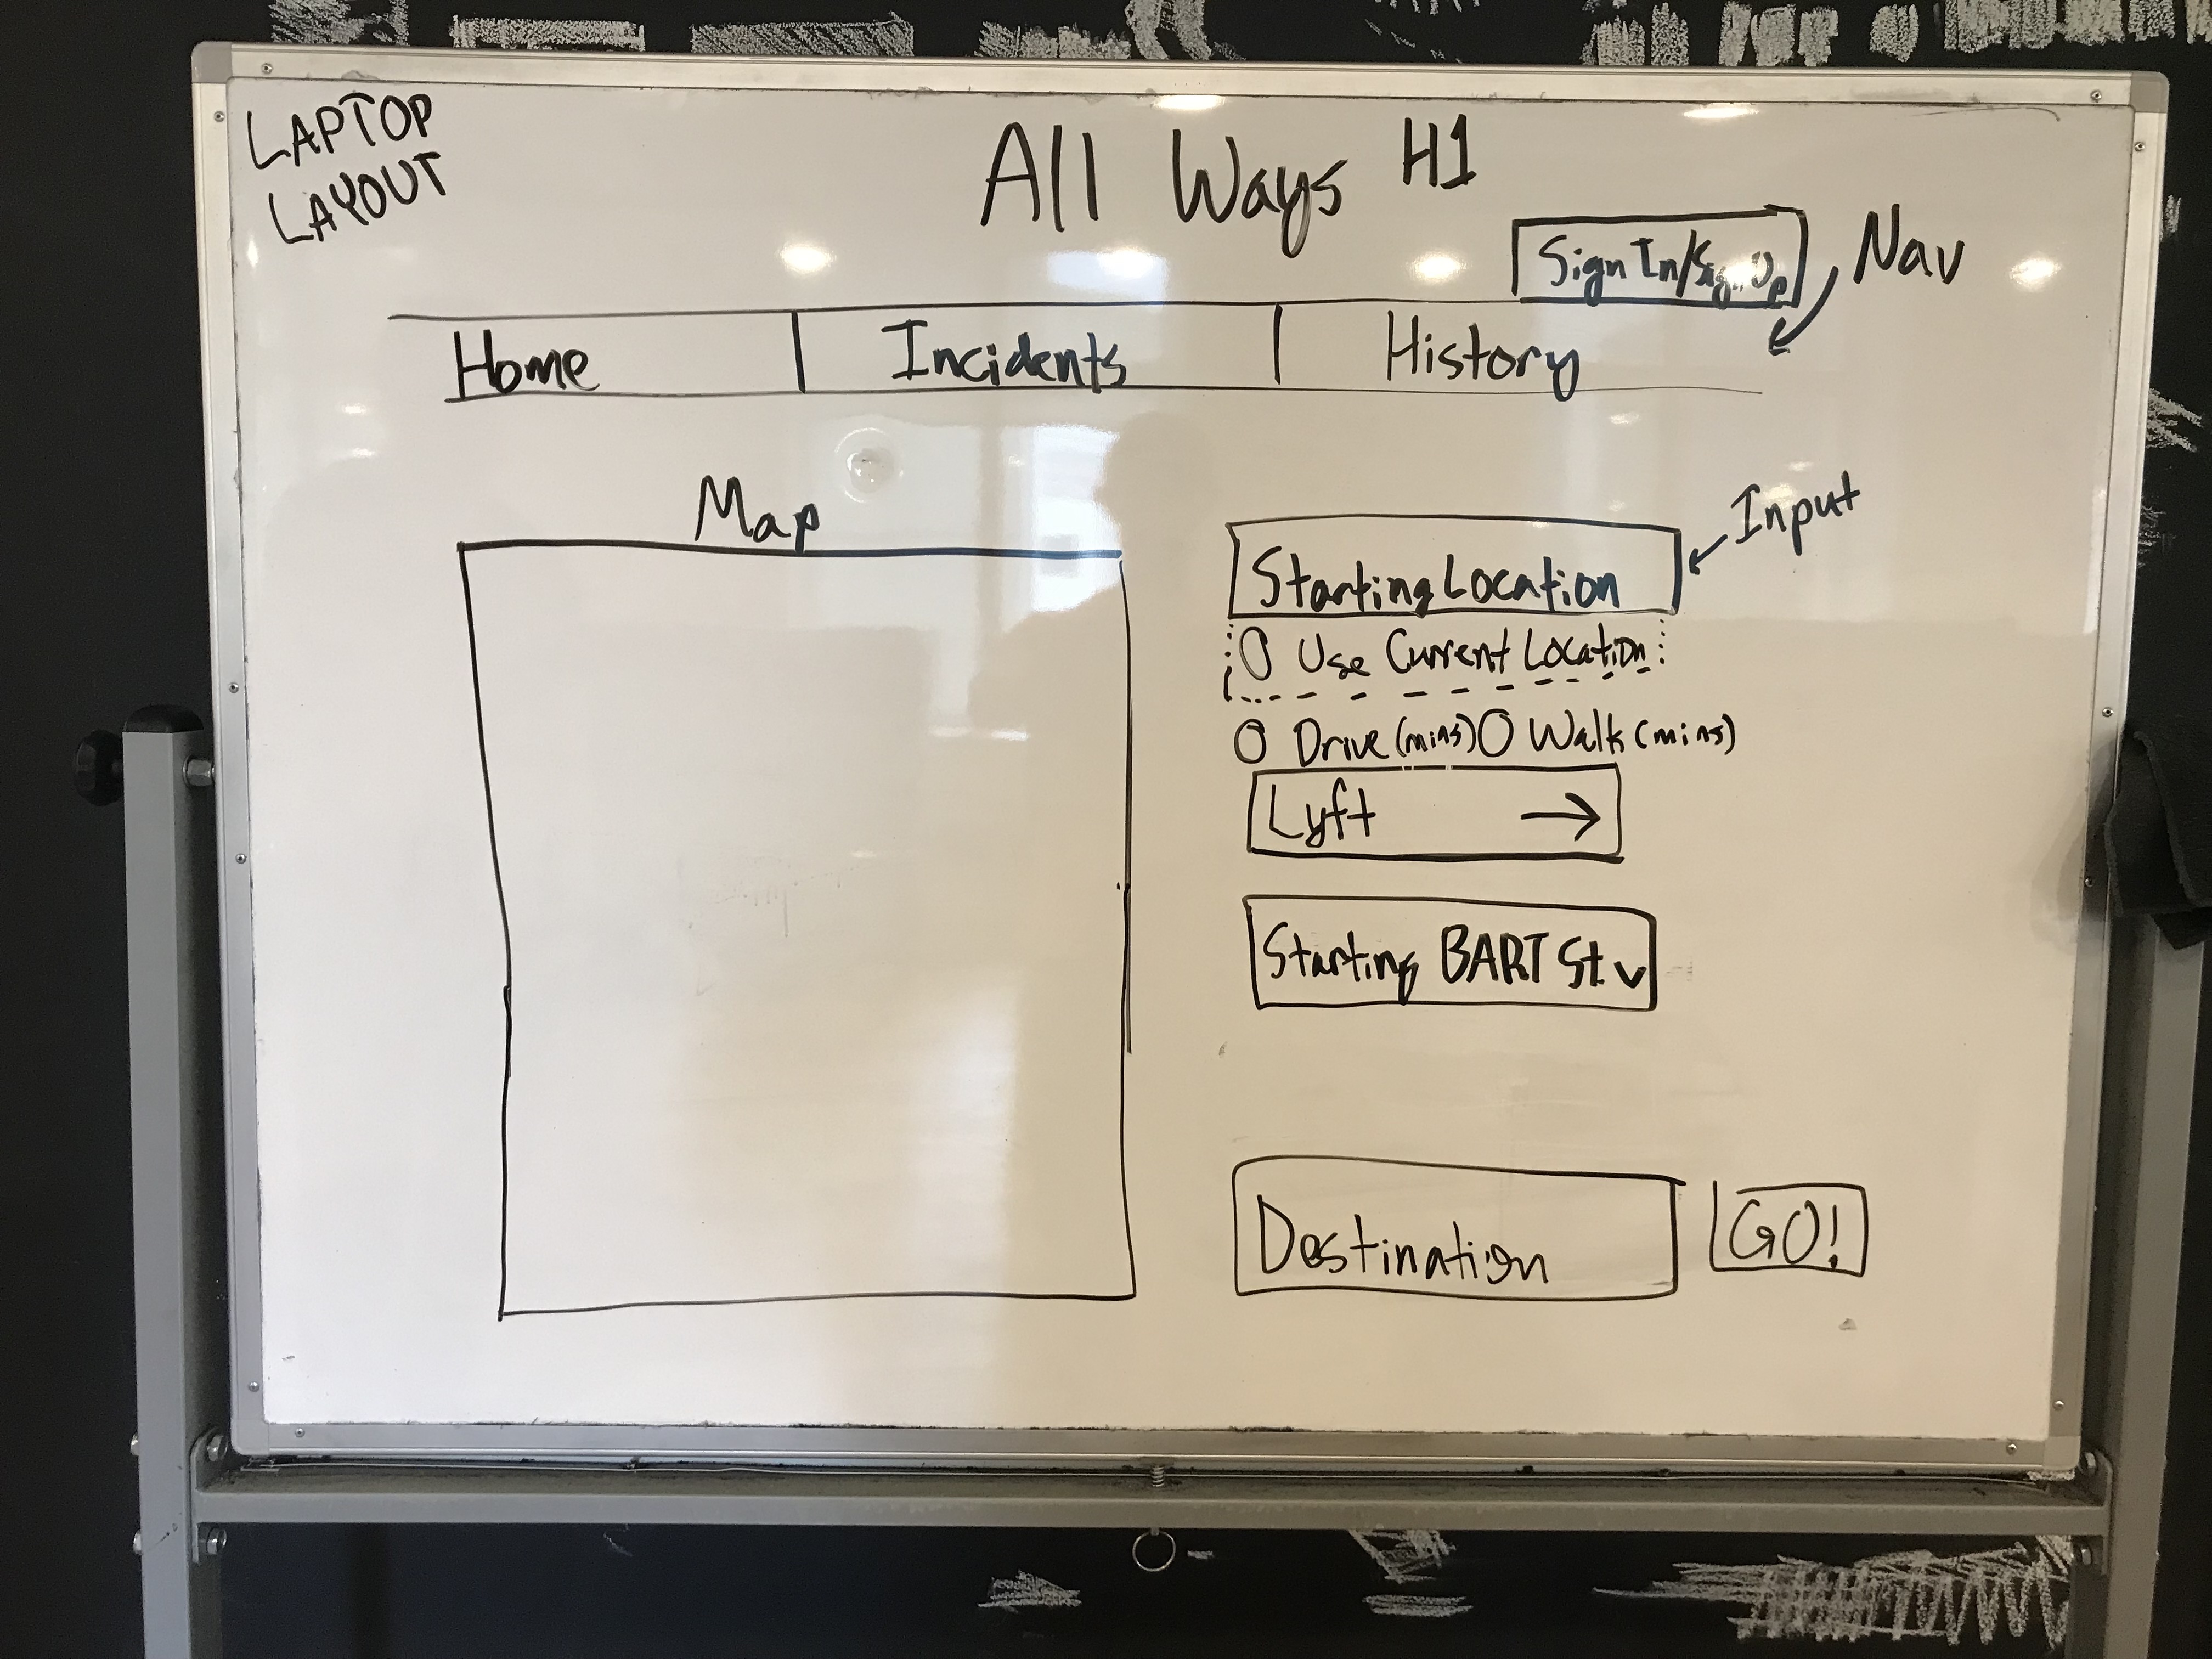 LAPTOP
LAYOUT
All Ways H1
Sign In/Sign Up
Nav
Home Incidents History
Map
Input
Starting Location
Use Current Location
Drive (mins) Walk (mins)
Lyft →
Starting BART St. v
Destination
GO!